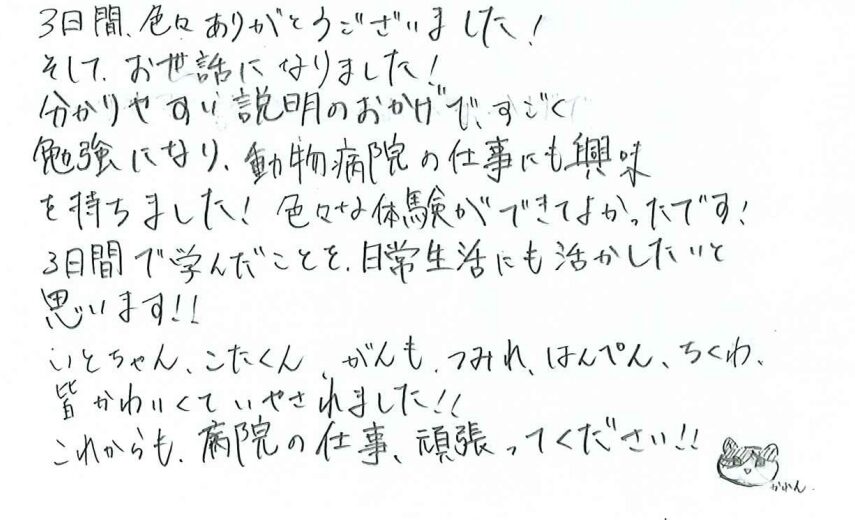 3日間、色々ありがとうございました!
そして、お世話になりました!
分かりやすい説明のおかげで、すごく
勉強になり、動物病院の仕事にも興味
を持ちました! 色々な体験ができてよかったです!
3日間で学んだことを、日常生活にも活かしたいと
思います!!
いとちゃん、こたくん、がんも、つみれ、はんぺん、ちくわ、
皆かわいくていやされました!!
これからも、病院の仕事、頑張ってください!!
かれん.